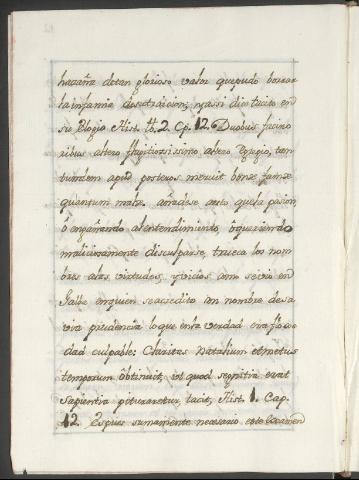 hazaña de tan glorioso valor que pudo borrar
la infamia de su traicion; y assi dice tacito en
su Elogio Hist. lb. 2. Cp. 12. Duobus facino
ribus altero flagitiosissimo altero Egregio, tan
tumdem apud posteros meruit bonæ famæ
quantum malæ. añadese aesto que la pasion,
ô engañando al entendimiento, ô queriendo
maliciosamente disculparse, trueca los nom
bres alas virtudes, y vicios como se vio en
Galba en quien se acredito con nombre de sa
via prudencia lo que en la verdad era floxe
dad culpable: Claritas Natalium et metus
temporum obtinuit, ut quod segnitia erat
Sapientia vocaretur, tacit, Hist. 1. Cap.
12. Es pues sumamente necesario este Examen